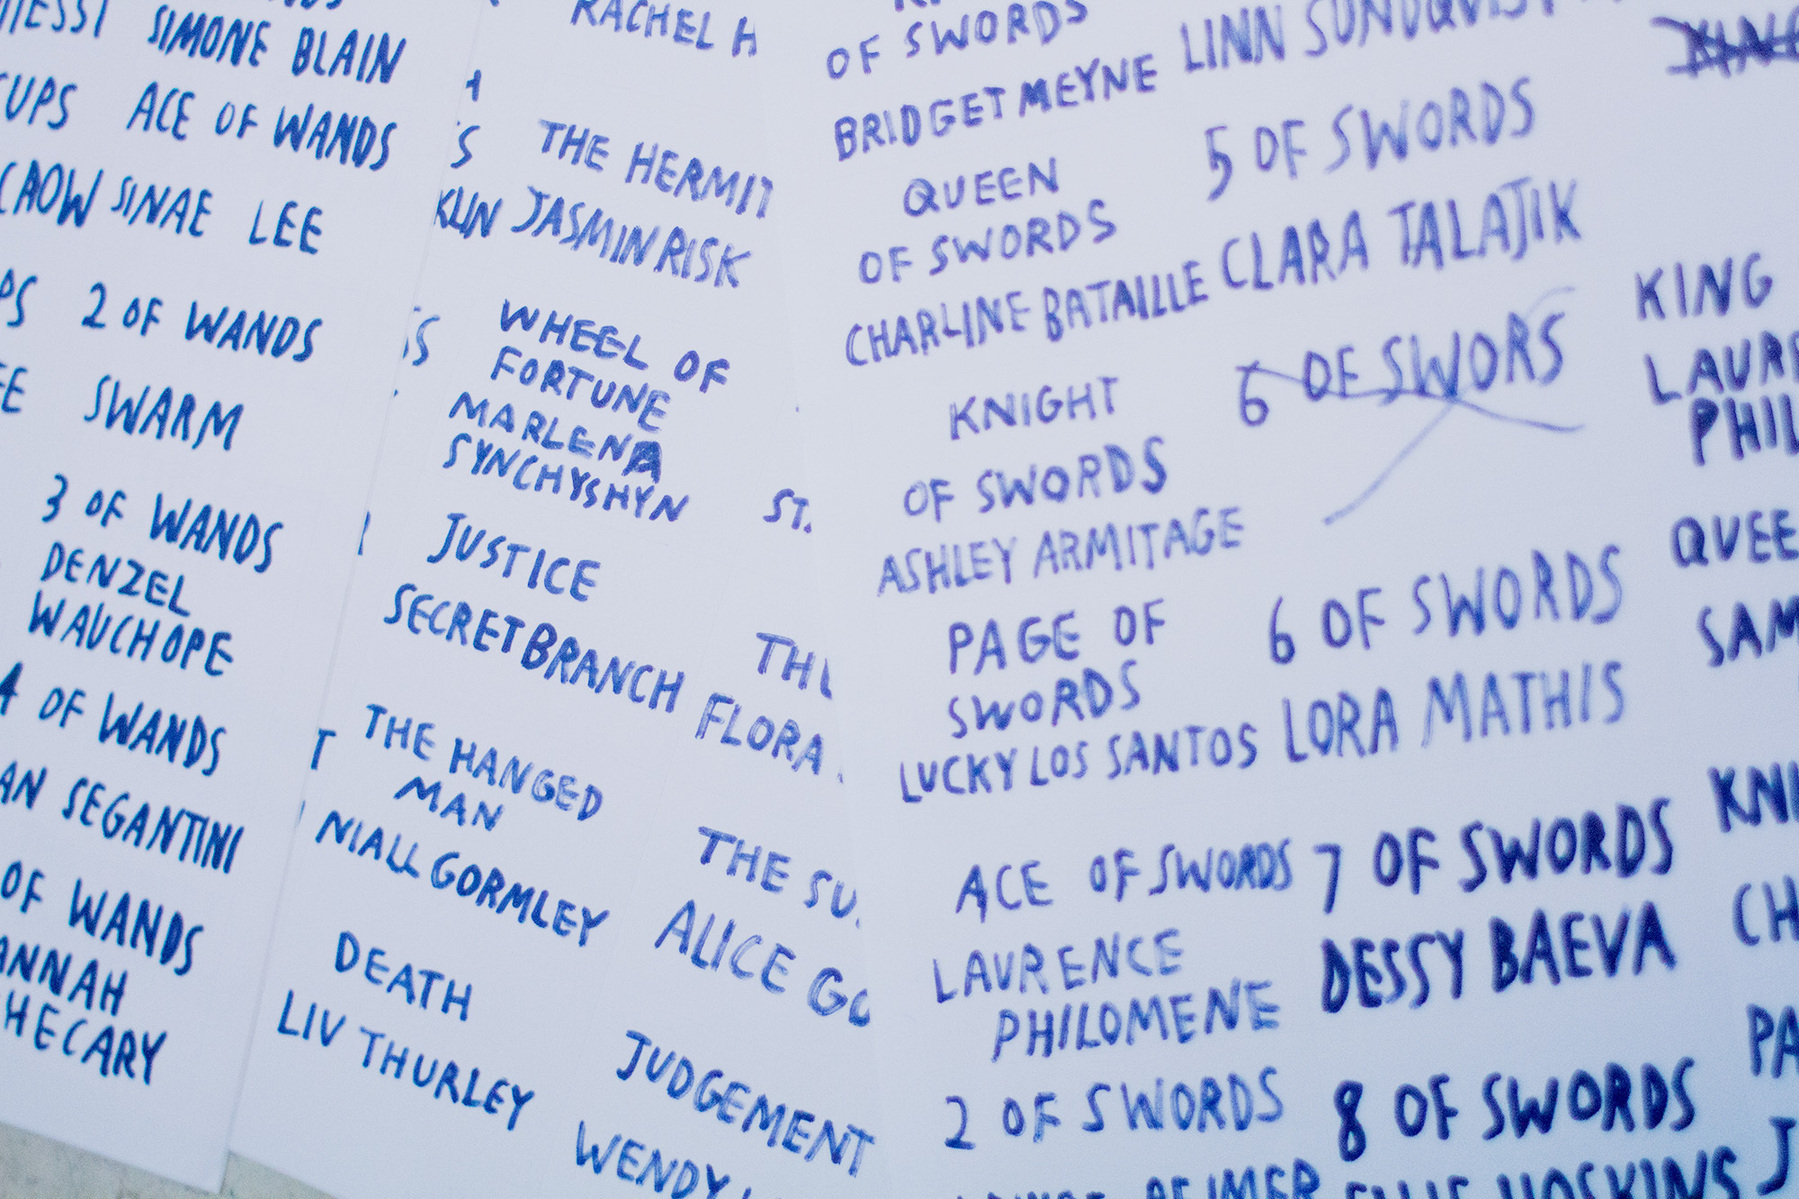 SIMONE BLAIN
CUPS ACE OF WANDS
SINAE LEE
2 OF WANDS
SWARM
3 OF WANDS
DENZEL
WAUCHOPE
4 OF WANDS
SEGANTINI
OF WANDS
RACHEL H
THE HERMIT
JASMIN RISK
WHEEL OF
FORTUNE
MARLENA
SYNCHYSHYN
ST.
JUSTICE
SECRET BRANCH
THE HANGED
MAN
NIALL GORMLEY
DEATH
LIV THURLEY
FLORA
THE SU
ALICE GO
JUDGEMENT
WENDY
OF SWORDS
BRIDGET MEYNE
QUEEN
OF SWORDS
CHARLINE BATAILLE
KNIGHT
OF SWORDS
ASHLEY ARMITAGE
PAGE OF
SWORDS
LUCKY LOS SANTOS
ACE OF SWORDS
LAURENCE
PHILOMENE
2 OF SWORDS
LINN SUNDQVIST
5 OF SWORDS
CLARA TALAJIK
6 OF SWORS
6 OF SWORDS
LORA MATHIS
7 OF SWORDS
DESSY BAEVA
8 OF SWORDS
HOSKINS
KING
LAURE
PHIL
QUEE
SAM
KNI
CH
PA
J